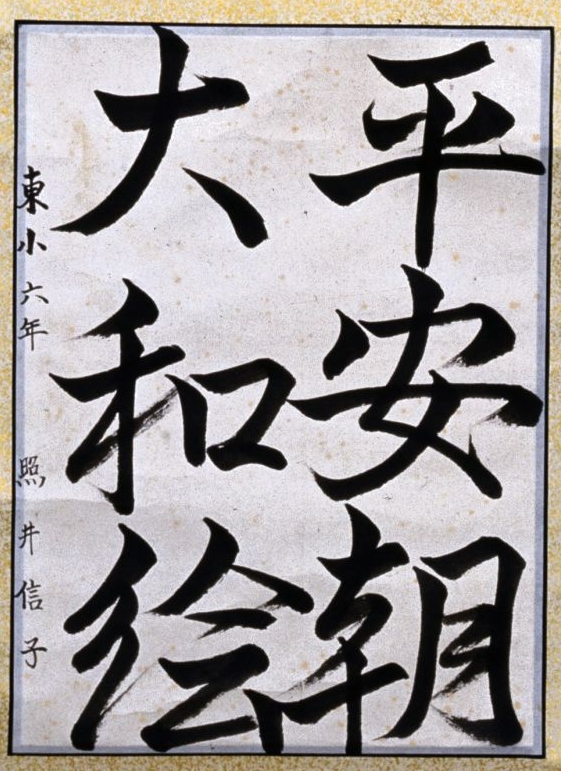 平安朝
大和絵
東小六年 照井信子